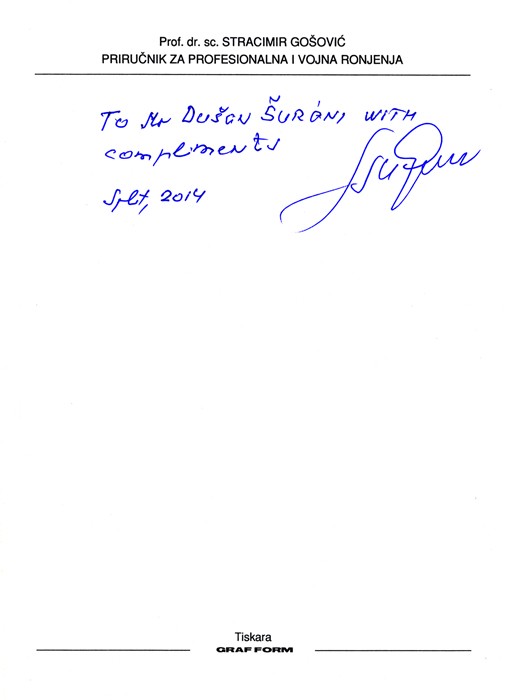 Prof. dr. sc. STRACIMIR GOŠOVIĆ
PRIRUČNIK ZA PROFESIONALNA I VOJNA RONJENJA
To Mr Dušan Šuráni with
compliments
Split, 2014
Tiskara
GRAF FORM